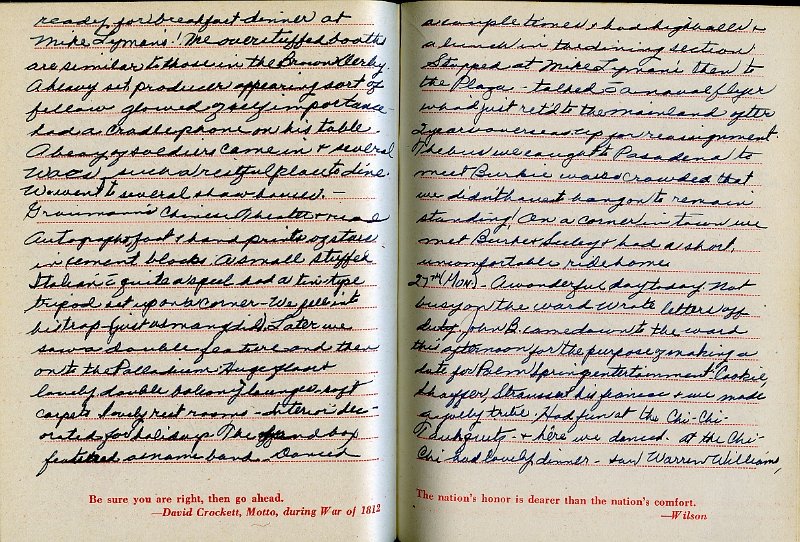 ready for breakfast dinner at
Mike Lyman's! The overstuffed booths
are similar to those in the Brown Derby.
A heavy set producer appearing sort of
fellow glowed of self importance -
had a cradle phone on his table
A bevy of soldiers came in & several
Wacs, such a restful place to dine.
We went to several show houses. -
Graumann's Chinese Theatre & read
Autographs, foot & hand prints of stars
in cement blocks. A small stuffed
Italian c̄ quite a spiel had a tin-type
tripod set up on a corner - We fell into
his trap (just as many did) Later we
saw a double feature and then
on to the Palladium. Huge floor
lovely double balcony lounges, soft
carpets lovely rest rooms - interior dec-
orated for holidays. The band box
featured a name band. Danced
Be sure you are right, then go ahead.
—David Crockett, Motto, during War of 1812
a couple times & had highballs &
a lunch in the dining section
Stopped at Mike Lyman's then to
the Plaza - talked c̄ a naval flyer
who'd just ret'd to the mainland after
2 years overseas up for reassignment
The bus we caught to Pasadena to
meet Burkie was so crowded that
we didn't have to hang on to remain
standing! On a corner in town we
met Burke & had a short,
uncomfortable ride home
27th (Mon) - A wonderful day today. Not
busy on the ward wrote letters off
duty. John B. came down to the ward
this afternoon for the purpose of making a
date for Palm Springs entertainment Cookie,
Shaffer, Strausser his fiancee & we made
a jolly trio. Had fun at the Chi-Chi
& here we danced. At the Chi-
Chi had lovely dinner - saw Warren William,
The nation's honor is dearer than the nation's comfort.
—Wilson